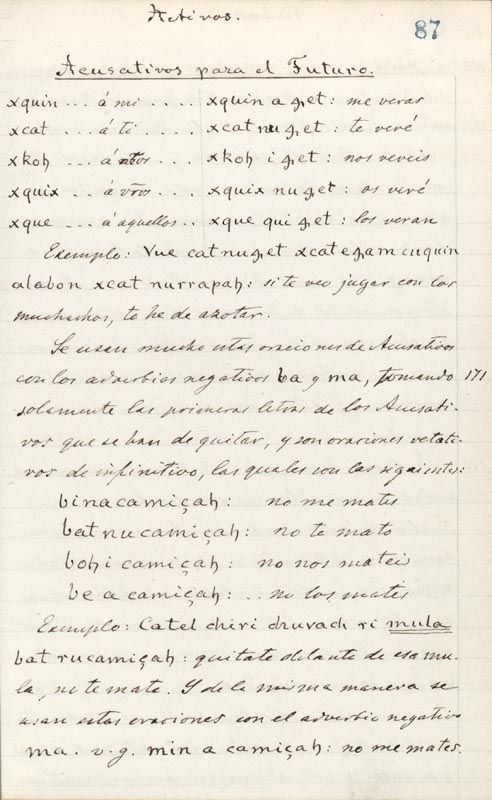 Activos.
87
Acusativos para el Futuro.
xquin ... á mi .... xquin a g,et: me veras
xcat ... á ti .... xcat nu g,et: te veré
xkoh ... á ntos ... xkoh i g,et: nos vereis
xquix ... á vros ... xquix nu g,et: os veré
xque ... á aquellos .. xque qui g,et: los veran
Exemplo: Vue cat nug,et xcateg,am cuquin
alabon xcat nurrapah: si te veo jugar con los
muchachos, te he de azotar.
Se usan mucho estas oraciones de Acusativos
con los adverbios negativos ba y ma, tomando 171
solamente las primeras letras de los Acusati-
vos que se han de quitar, y son oraciones vetati-
vas de infinitivo, las quales son las siguientes:
binacamiçah: no me mates
bat nu camiçah: no te mato
bohi camiçah: no nos mateis
be a camiçah: .. no los mates
Exemplo: Catel chiri chuvach ri mula
bat rucamiçah: quitate delante de esa mu-
la, no te mate. Y de la misma manera se
usan estas oraciones con el adverbio negativo
ma. v.g. min a camiçah: no me mates.